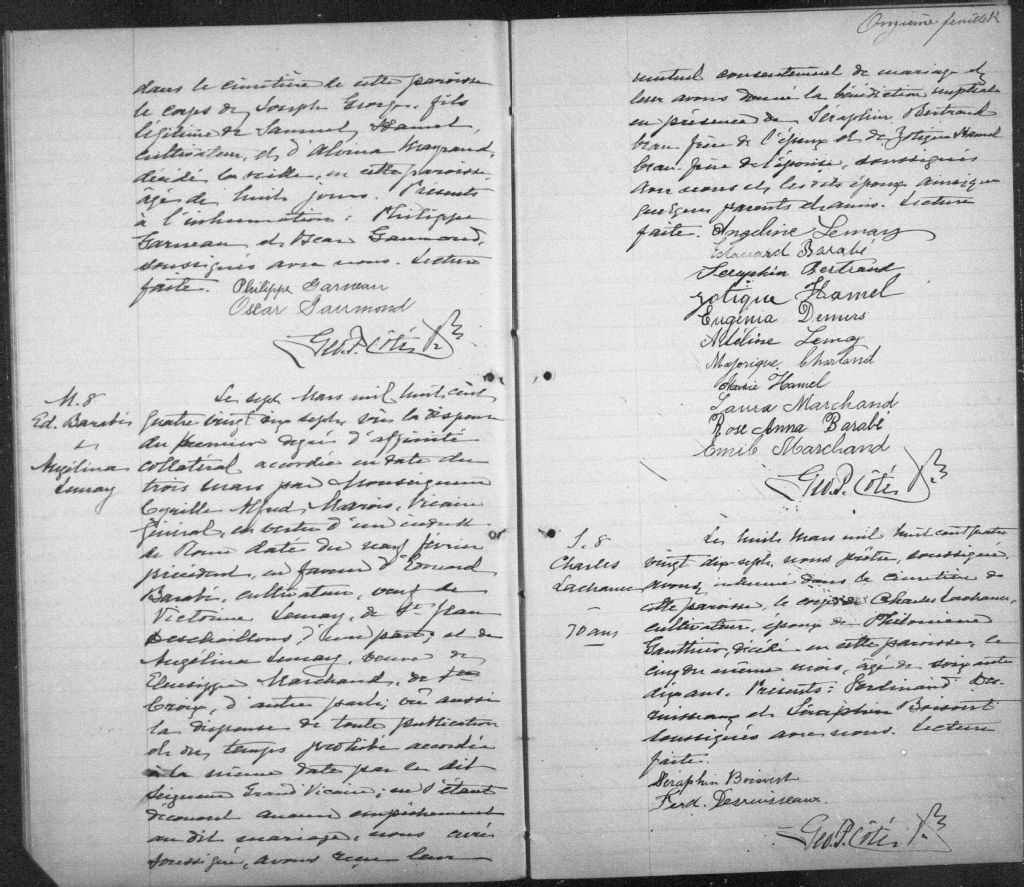 dans le cimetière de cette paroisse
le corps de Joseph George, fils
légitime de Samuel Hamel,
cultivateur, et d'Alvina Magnand,
décédé la veille, en cette paroisse,
âgé de huit jours. Présents
à l'inhumation: Philippe
Garneau et Oscar Gaumond,
soussignés avec nous. Lecture
faite. Philippe Garneau
Oscar Gaumond
Geo. P. Côté, Ptre
M. 8
Ed. Barabé
&
Angélina
Lemay
Le sept Mars mil huit cent
quatre vingt dix sept, vu la dispense
du premier degré d'affinité
collatéral accordée en date du
trois mars par Monseigneur
Cyrille Alfred Marois, Vicaire
Général, en vertu d'un indult
de Rome daté du neuf février
précédent, en faveur d'Edouard
Barabé, cultivateur, veuf de
Victorine Lemay, de St Jean
Deschaillons, d'une part, et de
Angélina Lemay, veuve de
Eleusippe Marchand, de Ste
Croix, d'autre part; vu aussi
la dispense de toute publication
et du temps prohibé accordée
à la même date par le dit
Seigneur Grand Vicaire; ne s'étant
découvert aucun empêchement
au dit mariage, nous curé
soussigné, avons reçu leur
Onzième feuillet
mutuel consentement de mariage et
leur avons donné la bénédiction nuptiale
en présence de Séraphin Bertrand
beau frère de l'époux et de Zotique Hamel
beau-frère de l'épouse, soussignés
avec nous et les dits époux ainsi que
quelques parents et amis. Lecture
faite. Angéline Lemay
Edouard Barabé
Séraphin Bertrand
Zotique Hamel
Eugénia Demers
Adéline Lemay
Majorique Charland
Marie Hamel
Laura Marchand
Rose Anna Barabé
Emile Marchand
Geo. P. Côté, Ptre
S. 8
Charles
Lachance
70 ans
Le huit Mars mil huit cent quatre
vingt dix-sept, nous prêtre, soussigné,
avons inhumé dans le cimetière de
cette paroisse, le corps de Charles Lachance,
cultivateur, époux de Philomène
Gauthier, décédé en cette paroisse, le
cinq du même mois, âgé de soixante
dix ans. Présents: Ferdinand Des-
ruisseaux et Séraphin Boisvert
soussignés avec nous. Lecture
faite.
Séraphin Boisvert
Ferd. Desruisseaux
Geo. P. Côté, Ptre